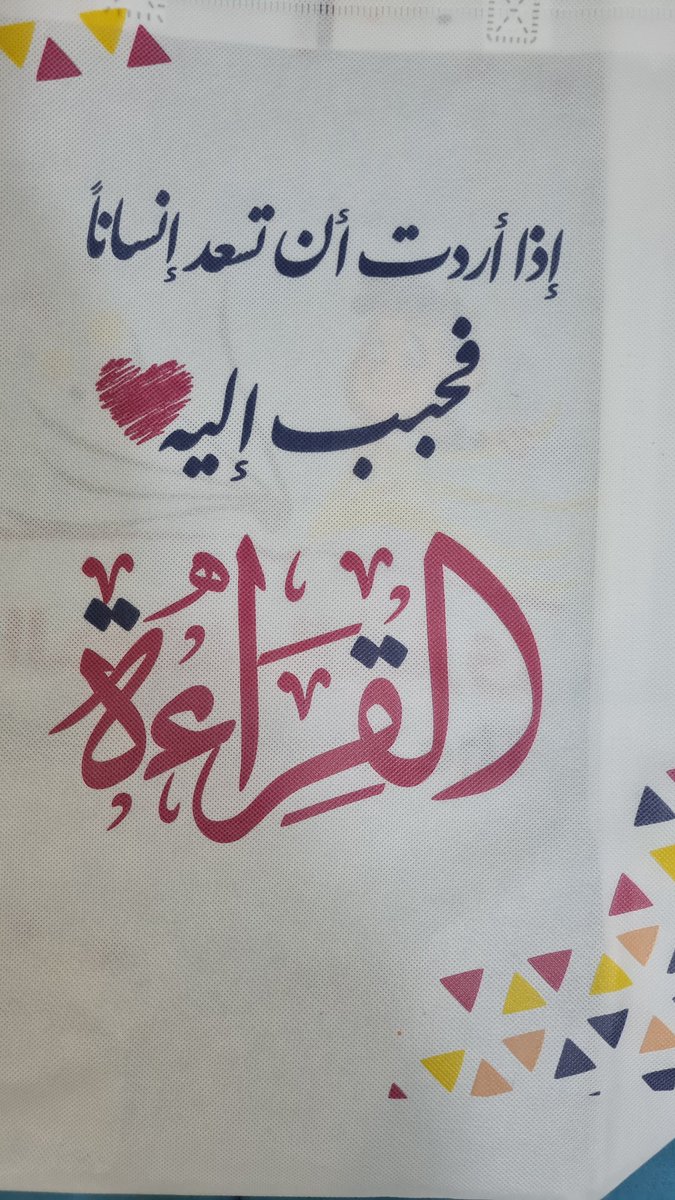 إذا أردت أن تسعد إنساناً
فحبب إليه
القِرَاءةُ